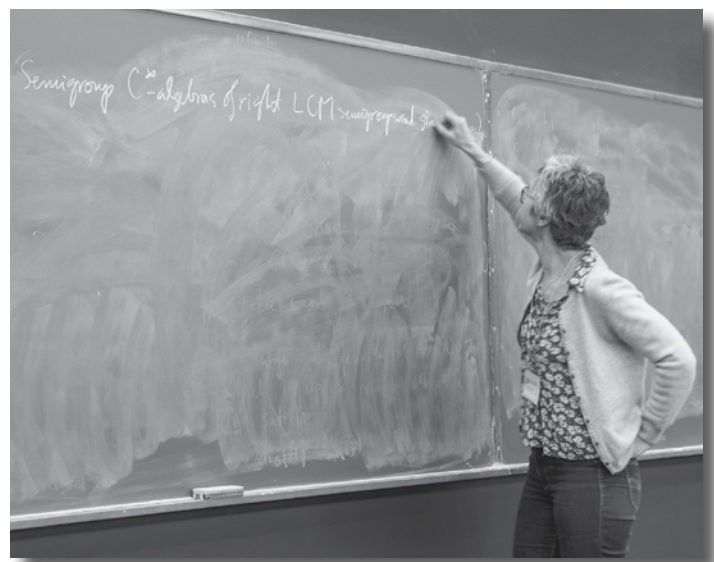 Semigroup C*-algebras of right LCM semigroups and